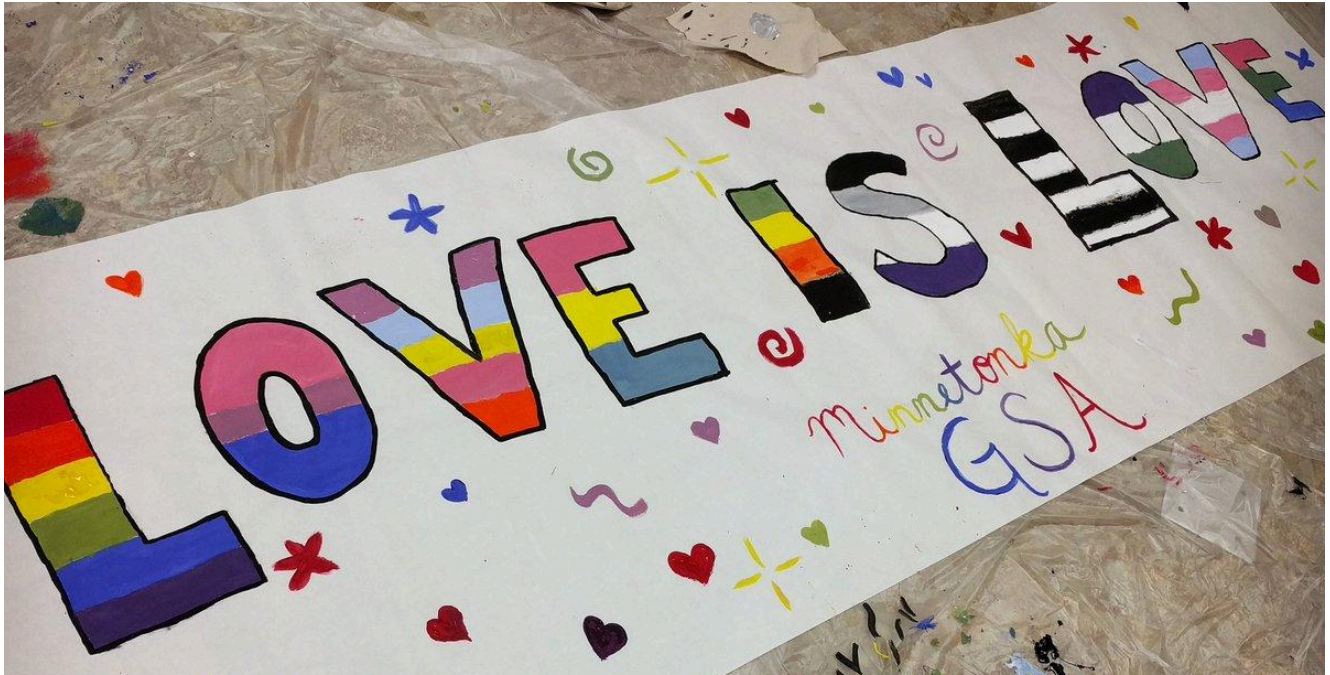 LOVE IS LOVE
Minnetonka
GSA